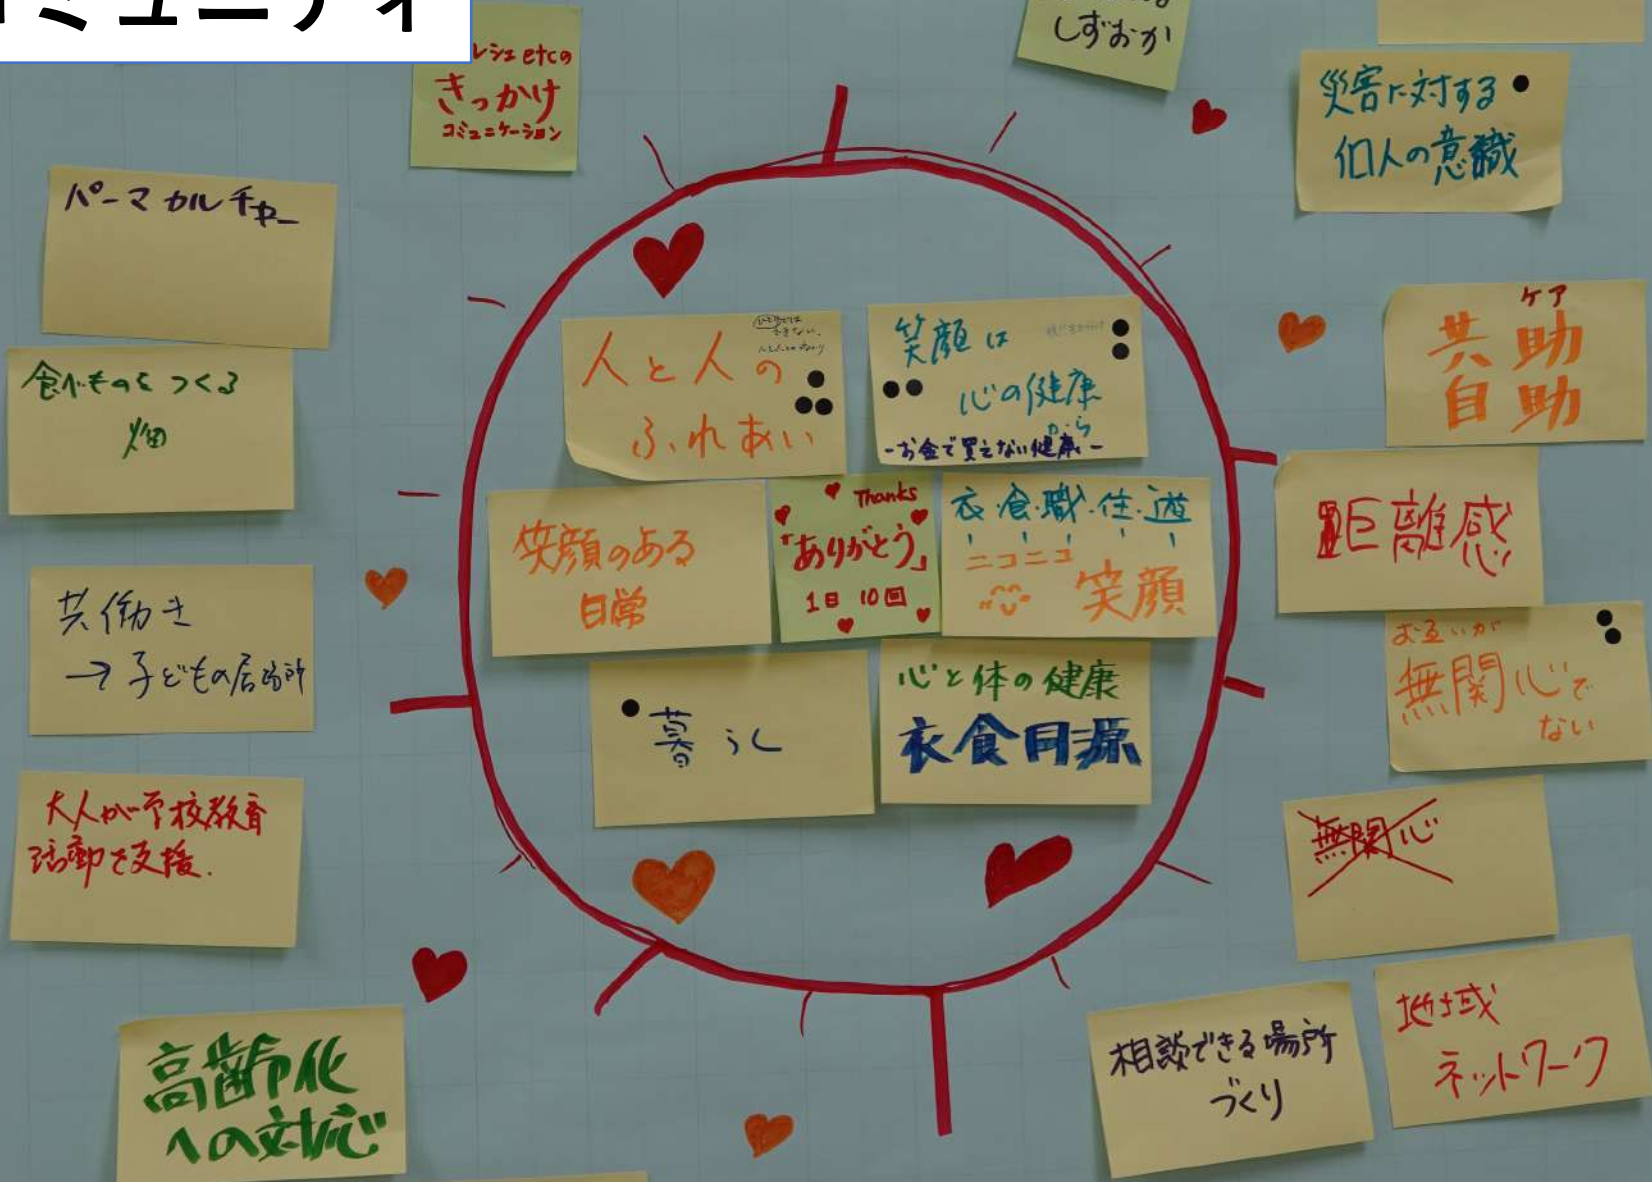 コミュニティ
etcの
きっかけ
コミュニケーション
しずおか
災害に対する
個人の意識
パーマカルチャー
食べものをつくる
畑
共働き
→子どもの居場所
大人が学校教育
活動を支援.
高齢化
への対応
人と人の
ふれあい
笑顔は
心の健康
から
-お金で買えない健康-
笑顔のある
日常
Thanks
「ありがとう」
1日 10回
衣・食・職・住・遊
ニコニコ
笑顔
暮らし
心と体の健康
衣食同源
ケア
共助
自助
距離感
お互いが
無関心で
ない
無関心
地域
ネットワーク
相談できる場所
づくり